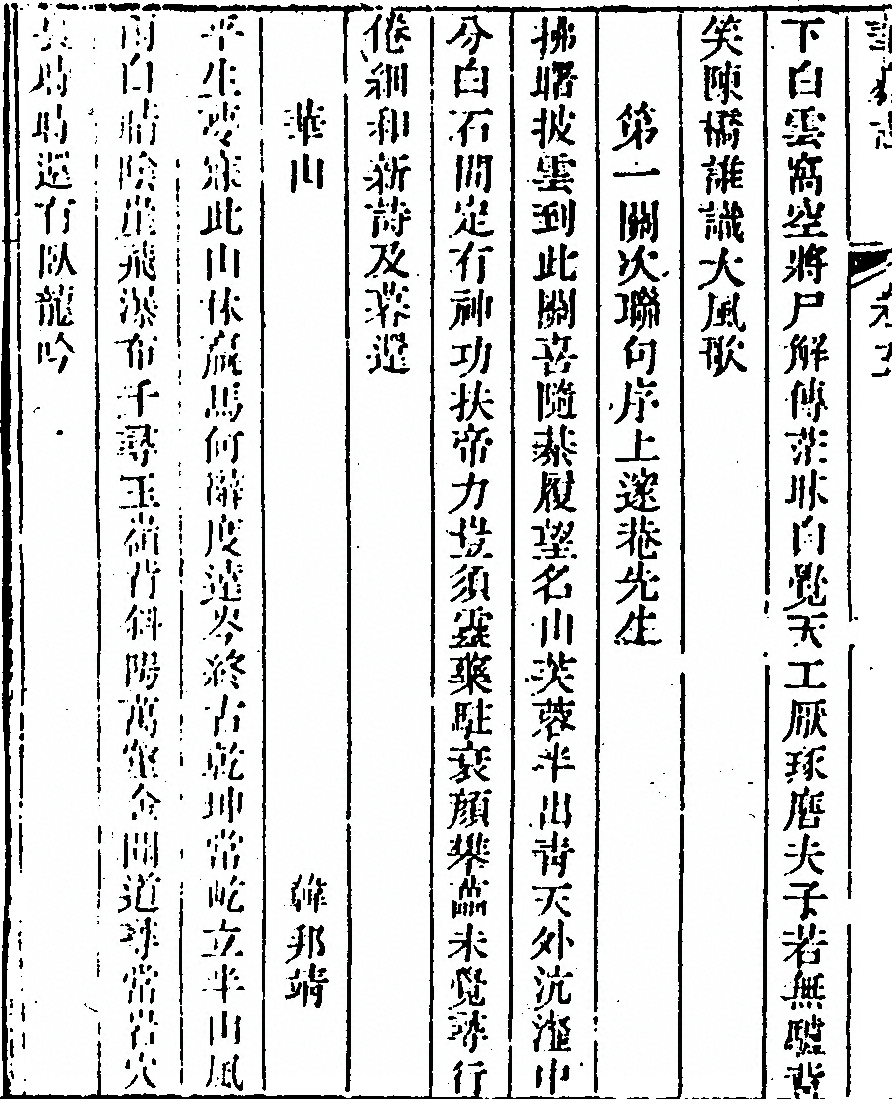 下白雲窩空將尸解傳茫昧自覺天工厭琢磨夫子若無驢背
笑陳橋誰識大風歌
第一關次聯句序上邃菴先生
拂曙披雲到此關喜隨綦履望名山芙蓉半出青天外沆瀣中
分白石間定有神功扶帝力豈須靈藥駐衰顏攀躋未覺尋行
倦細和新詩及暮還
華山
韓邦靖
平生夢寐此山休羸馬何辭度遠岑終古乾坤常屹立半山風
雨自晴陰崖飛瀑布千尋玉嶺背斜陽萬壑金聞道尋常岩穴
裏時時還有臥龍吟